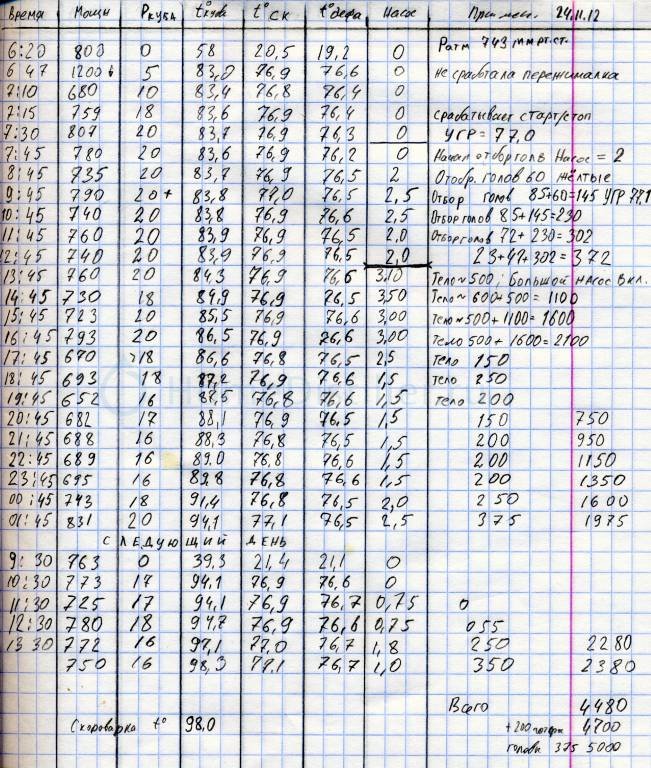 Время Мощн Pкуба t°куба t°ск t°дефл Насос Примеч. 24.11.12
6:20 800 0 58 20,5 19,2 0 Pатм 743 мм рт.ст.
6 47 1200 5 83,0 76,9 76,6 0 не сработала пережималка
7:10 680 10 83,4 76,8 76,4 0
7:15 759 18 83,6 76,9 76,4 0 срабатывает старт/стоп
7:30 807 20 83,7 76,9 76,3 0 УГР = 77,0
7:45 780 20 83,6 76,9 76,2 0 Начал отбор голв Насос = 2
8:45 735 20 83,7 76,9 76,5 2 Отобр. голов 60 жёлтые
9:45 790 20+ 83,8 77,0 76,5 2,5 Отбор голов 85+60=145 УГР 77.1
10:45 740 20 83,8 76,9 76,6 2,5 Отбор голов 85+145=230
11:45 760 20 83,9 76,9 76,5 2,0 Отбор голов 72+230=302
12:45 740 20 83,9 76,9 76,5 2,0 23+47+302=372
13:45 760 20 84,3 76,9 76,6 3.10 Тело ~500; большой насос вкл.
14:45 730 18 84,9 76,9 76,5 3,50 Тело ~ 600+500=1100
15:45 723 20 85,5 76,9 76,6 3,00 Тело ~500+1100=1600
16:45 793 20 86,5 76,9 76,6 3,00 Тело 500+1600=2100
17:45 670 18 86,6 76,8 76,5 2,5 тело 150
18:45 693 18 87,2 76,9 76,6 1,5 тело 250
19:45 652 16 87,5 76,8 76,6 1,5 тело 200
20:45 682 17 88,1 76,9 76,5 1,5 150 750
21:45 688 16 88,3 76,8 76,5 1,5 200 950
22:45 689 16 89.0 76,8 76,6 1,5 200 1150
23:45 695 16 89.8 76,8 76,6 1,5 200 1350
00:45 743 18 91,4 76,8 76,5 2,0 250 1600
01:45 831 20 94,1 77,1 76,5 2,5 375 1975
СЛЕДУЮЩИЙ ДЕНЬ
9:30 763 0 39,3 21,4 21,1 0
10:30 773 17 94,1 76,9 76,6 0
11:30 725 17 94,1 76,9 76,7 0,75 0
12:30 780 18 94,7 76,9 76,6 0,75 055
13 30 772 16 97,1 77,0 76,7 1,8 250 2280
750 16 98,3 77,1 76,7 1,0 350 2380
Всего 4480
Скороварка t° 98,0 +200 потери 4700
головы 375 5000